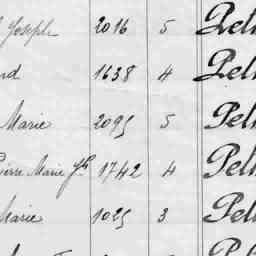 Joseph 2016 5 Pel
rd 1638 4 Pel
Marie 2095 5 Pel
ierre Marie Jh 1742 4 Pel
Marie 1025 3 Pel